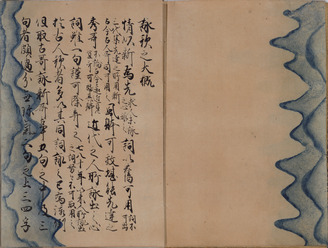 詠歌之大概
情以新為先求人未詠之心詠之詞以舊可用詞不可出
三代集先達之所用新古今古人哥同可用之風躰可效堪能先達之
秀哥不論古今遠近見宜哥可效其躰近代之人所詠出之心
詞雖一句謹可除弃之七八十年以来
於古人哥者多以其同詞詠之已為流例
但取古哥詠新哥事五句之中及三
句者頗過分無珎氣二句之上三四字